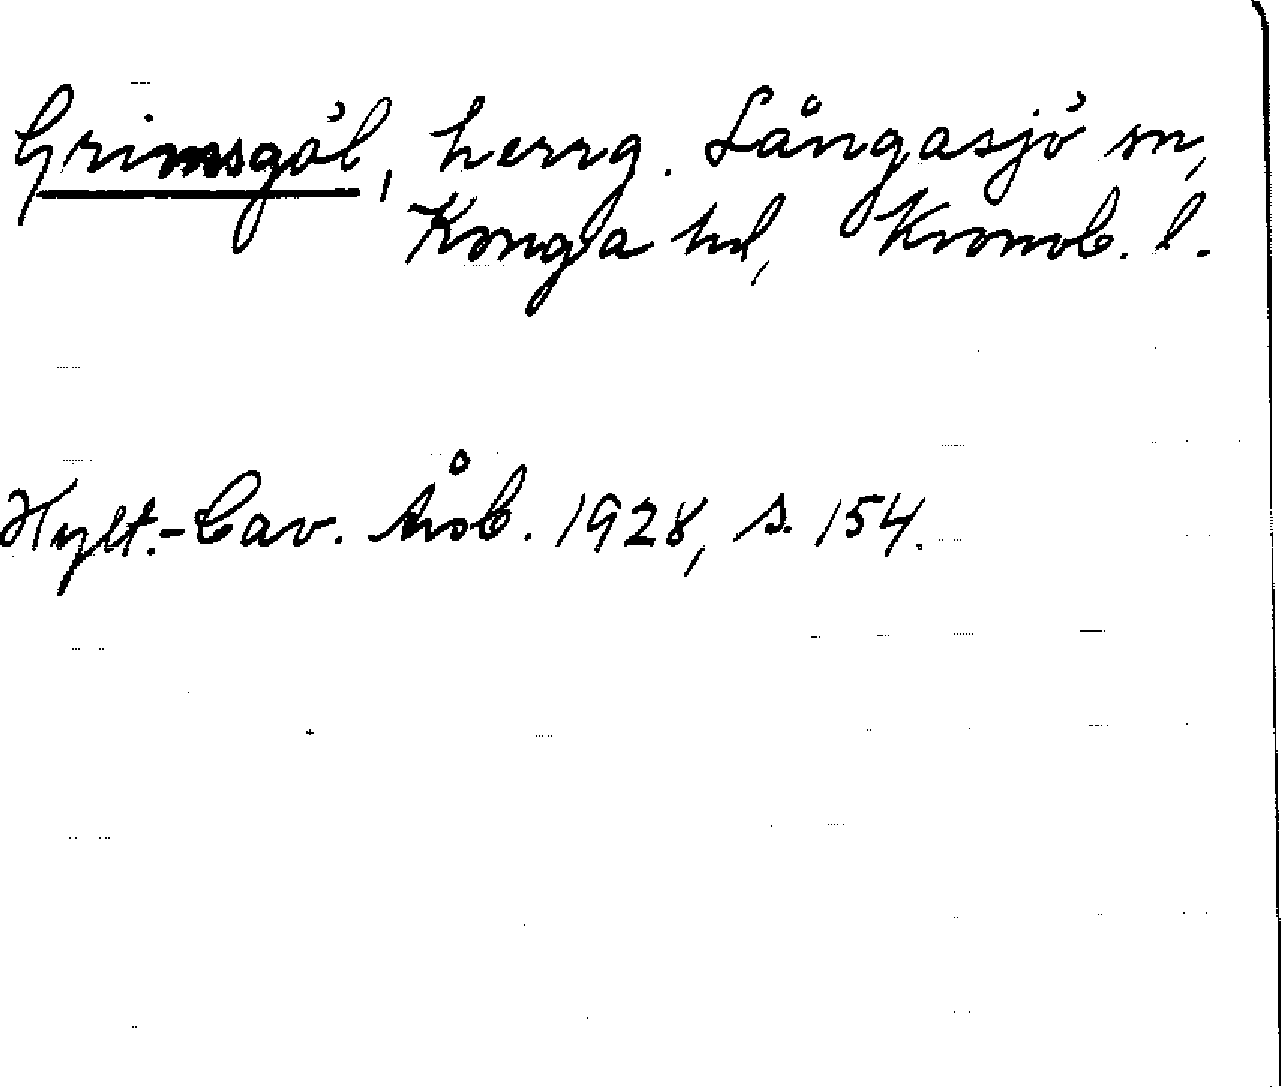 Grimsgöl, herrg. Långasjö sn,
Konga hd, Kronob. l.
Hylt.-Cav. Årsb. 1928, s. 154.